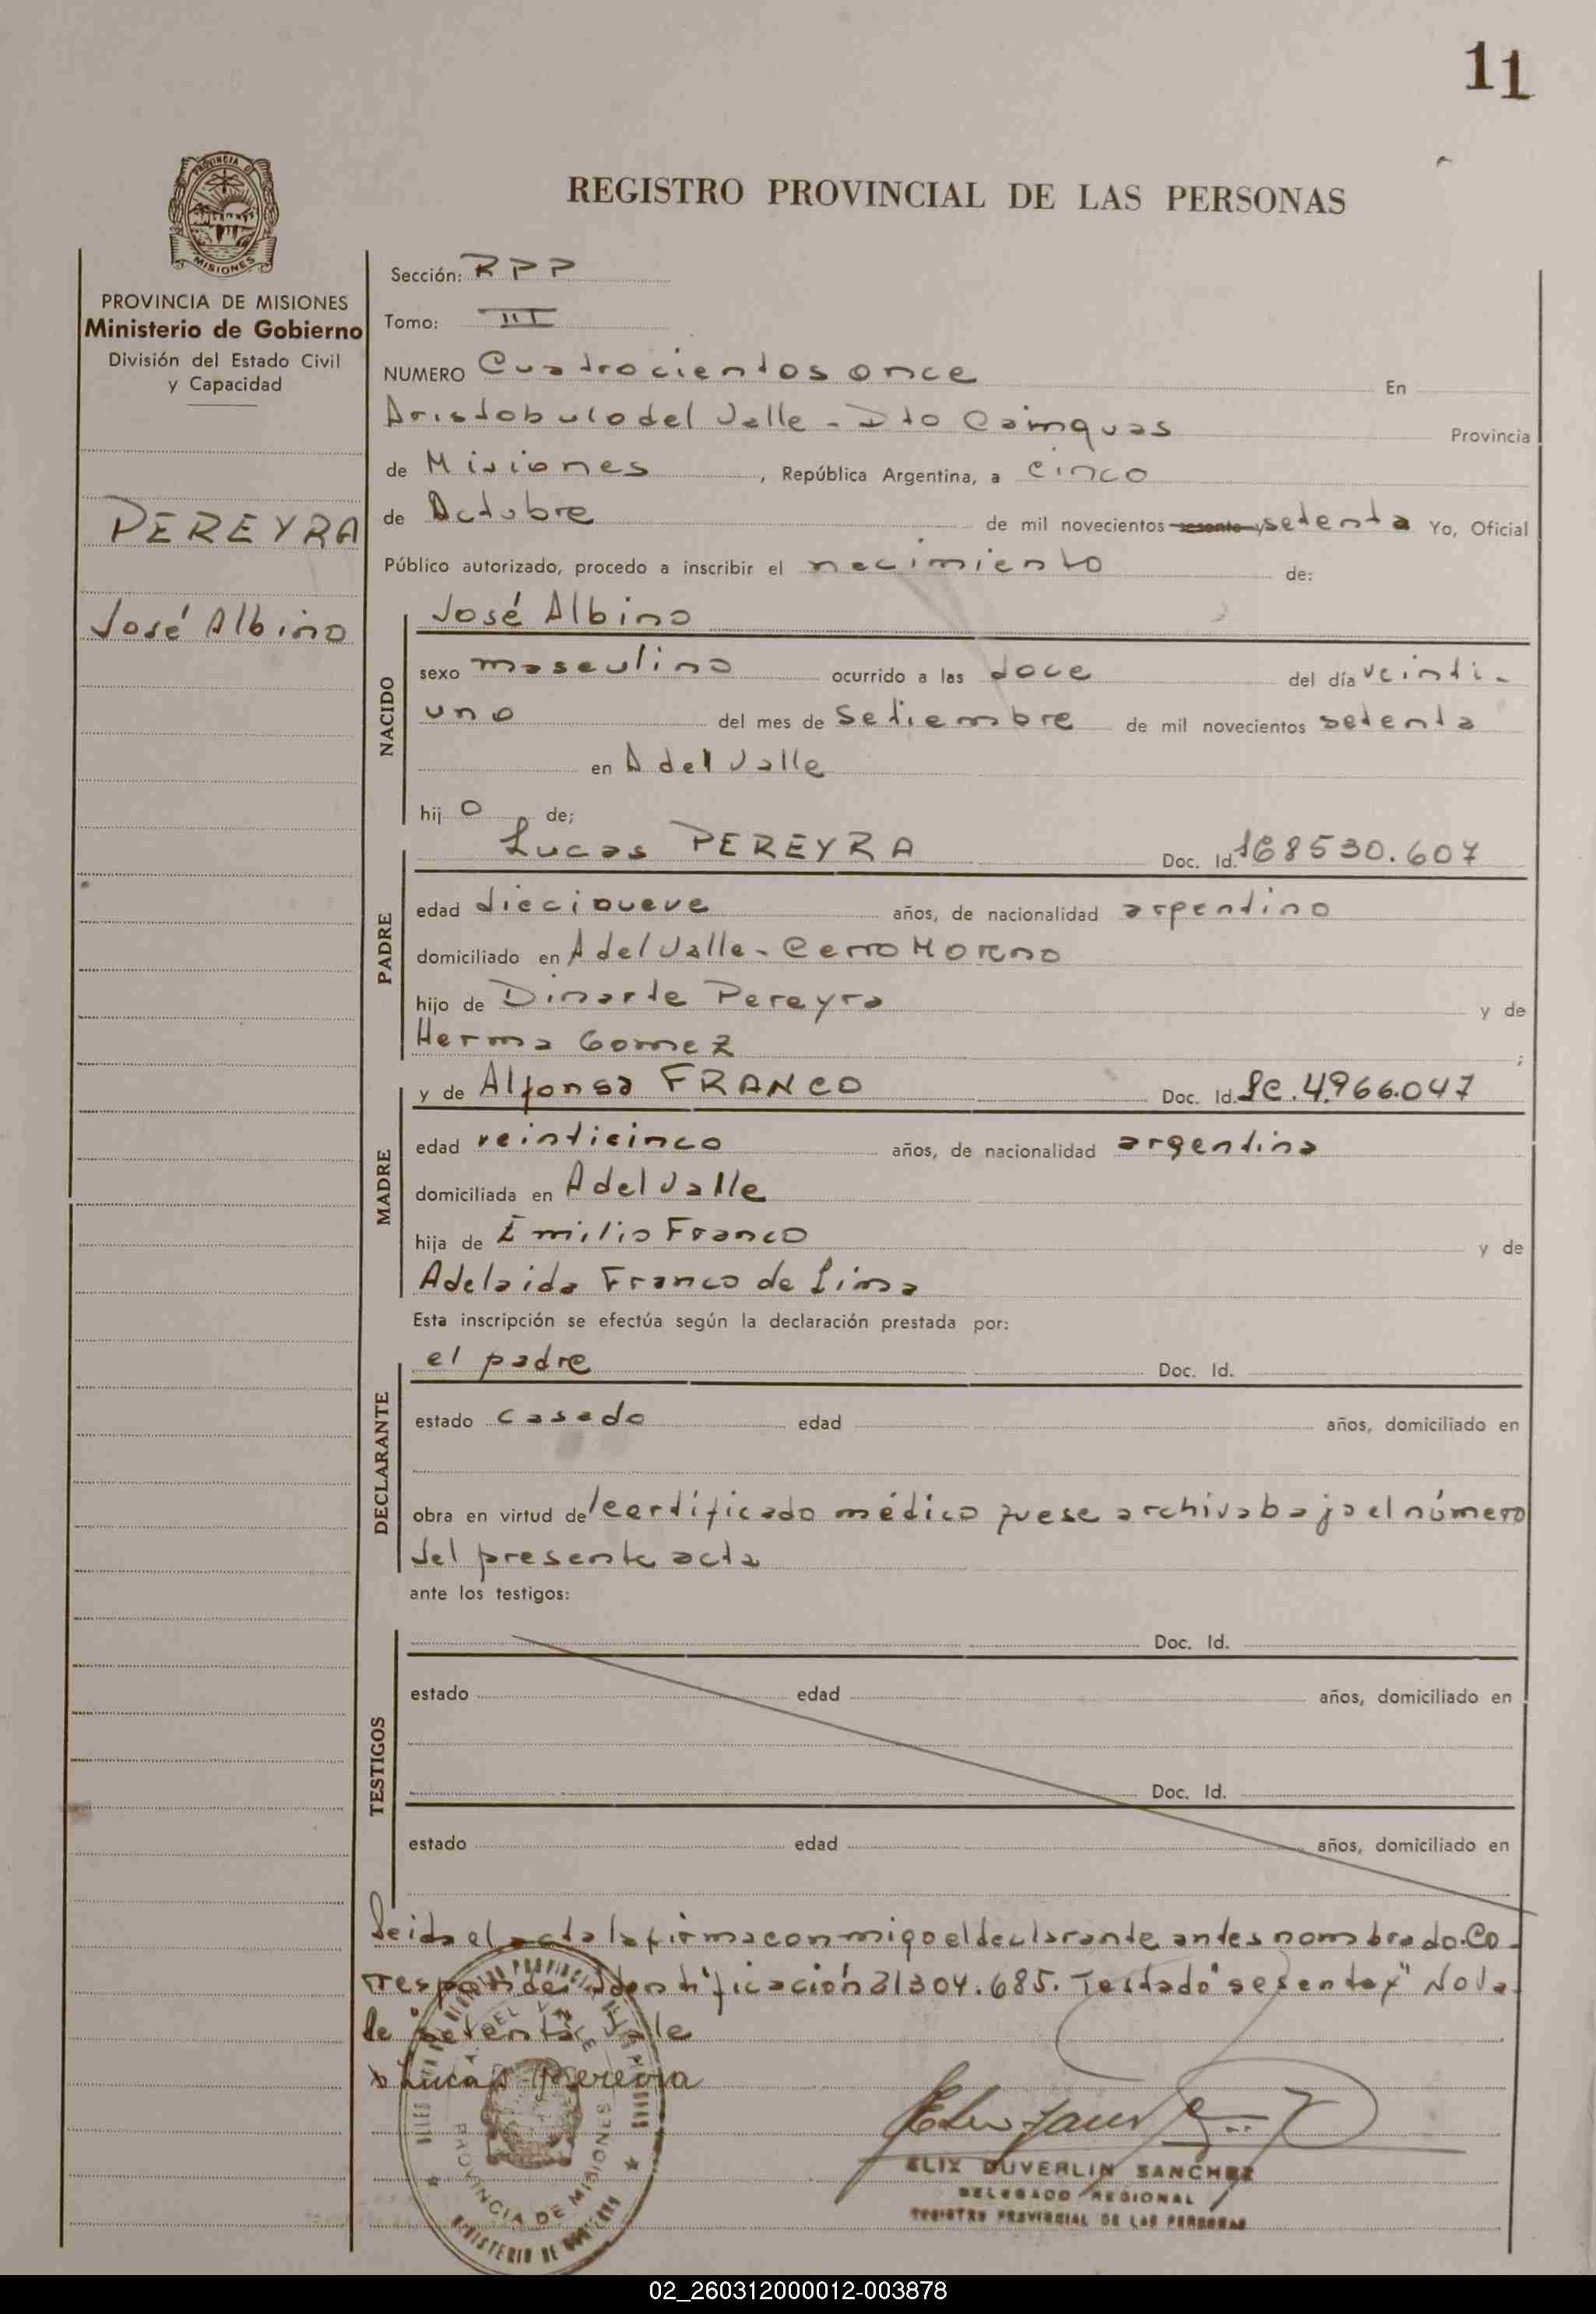 11
REGISTRO PROVINCIAL DE LAS PERSONAS
PROVINCIA DE MISIONES
Ministerio de Gobierno
División del Estado Civil
y Capacidad
PEREYRA
José Albino
Sección: RPP
Tomo: III
NUMERO Cuatrocientos once En
Aristobulo del Valle - Dto Cainguas Provincia
de Misiones, República Argentina, a cinco
de Octubre de mil novecientos sesenta y setenta Yo, Oficial
Público autorizado, procedo a inscribir el nacimiento de:
NACIDO
José Albino
sexo masculino ocurrido a las doce del día veinti-
uno del mes de Setiembre de mil novecientos setenta
en A del Valle
hijo de;
PADRE
Lucas PEREYRA Doc. Id. 168530.607
edad diecinueve años, de nacionalidad argentino
domiciliado en A del Valle - Cerro Moreno
hijo de Dinarte Pereyra y de
Herma Gomez ;
MADRE
y de Alfonsa FRANCO Doc. Id. LC.4.966.047
edad veinticinco años, de nacionalidad argentina
domiciliada en A del Valle
hija de Emilio Franco y de
Adelaida Franco de Lima
Esta inscripción se efectúa según la declaración prestada por:
DECLARANTE
el padre Doc. Id.
estado casado edad años, domiciliado en
obra en virtud del certificado médico que se archiva bajo el número
del presente acta
ante los testigos:
TESTIGOS
Doc. Id.
estado edad años, domiciliado en
Doc. Id.
estado edad años, domiciliado en
Leida el acta la firma conmigo el declarante antes nombrado. Co-
rresponde identificación 21304.685. Testado "sesenta y" No va
le "setenta" Vale
x Lucas Pereyra
ELIX DUVERLIN SANCHEZ
DELEGADO REGIONAL
REGISTRO PROVINCIAL DE LAS PERSONAS
A. DEL VALLE
PROVINCIA DE MISIONES
MINISTERIO DE GOBIERNO
02_260312000012-003878